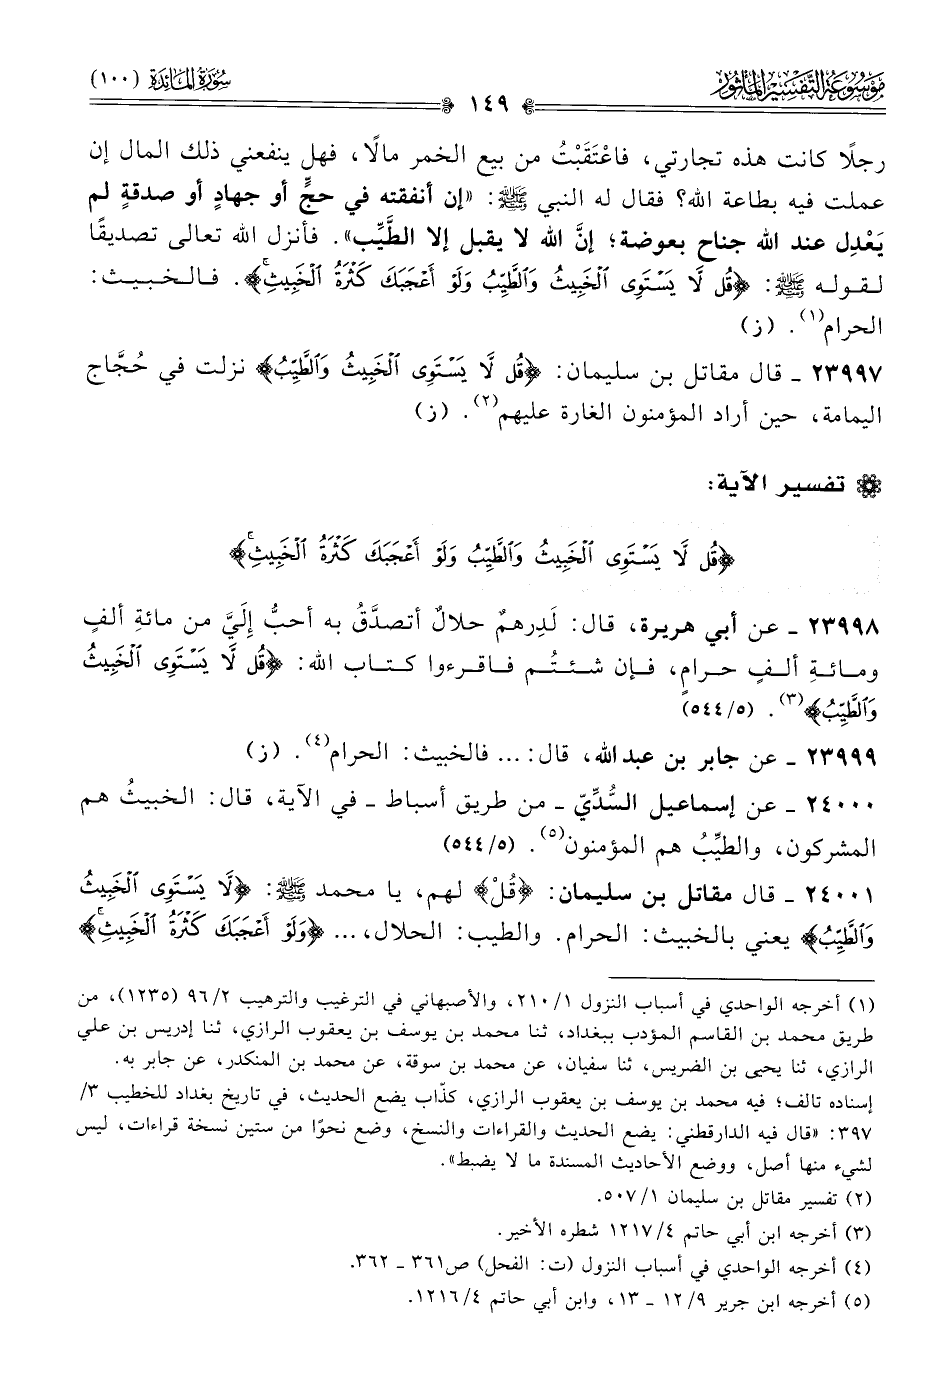 موسوعة التفسير المأثور
سورة المائدة (١٠٠)
١٤٩
رجلًا كانت هذه تجارتي، فاعْتَقَبْتُ من بيع الخمر مالًا، فهل ينفعني ذلك المال إن
عملت فيه بطاعة الله؟ فقال له النبي ﷺ: «إن أنفقته في حجٍّ أو جهادٍ أو صدقةٍ لم
يَعْدِل عند الله جناح بعوضة؛ إنَّ الله لا يقبل إلا الطَّيِّب». فأنزل الله تعالى تصديقًا
لقوله ﷺ: ﴿قُل لَّا يَسْتَوِى ٱلْخَبِيثُ وَٱلطَّيِّبُ وَلَوْ أَعْجَبَكَ كَثْرَةُ ٱلْخَبِيثِۚ﴾. فالخبيث:
الحرام(١). (ز)
٢٣٩٩٧ ـ قال مقاتل بن سليمان: ﴿قُل لَّا يَسْتَوِى ٱلْخَبِيثُ وَٱلطَّيِّبُ﴾ نزلت في حُجَّاج
اليمامة، حين أراد المؤمنون الغارة عليهم(٢). (ز)
تفسير الآية:
﴿قُل لَّا يَسْتَوِى ٱلْخَبِيثُ وَٱلطَّيِّبُ وَلَوْ أَعْجَبَكَ كَثْرَةُ ٱلْخَبِيثِۚ﴾
٢٣٩٩٨ ـ عن أبي هريرة، قال: لَدِرهمٌ حلالٌ أتصدَّقُ به أحبُّ إِلَيَّ من مائةِ ألفٍ
ومائةِ ألفٍ حرامٍ، فإن شئتُم فاقرءوا كتاب الله: ﴿قُل لَّا يَسْتَوِى ٱلْخَبِيثُ
وَٱلطَّيِّبُ﴾(٣). (٥/٥٤٤)
٢٣٩٩٩ ـ عن جابر بن عبدالله، قال: ... فالخبيث: الحرام(٤). (ز)
٢٤٠٠٠ ـ عن إسماعيل السُّدِّيّ ـ من طريق أسباط ـ في الآية، قال: الخبيثُ هم
المشركون، والطيِّبُ هم المؤمنون(٥). (٥/٥٤٤)
٢٤٠٠١ ـ قال مقاتل بن سليمان: ﴿قُلْ﴾ لهم، يا محمد ﷺ: ﴿لَّا يَسْتَوِى ٱلْخَبِيثُ
وَٱلطَّيِّبُ﴾ يعني بالخبيث: الحرام. والطيب: الحلال، ... ﴿وَلَوْ أَعْجَبَكَ كَثْرَةُ ٱلْخَبِيثِۚ﴾
(١) أخرجه الواحدي في أسباب النزول ١/٢١٠، والأصبهاني في الترغيب والترهيب ٢/٩٦ (١٢٣٥)، من
طريق محمد بن القاسم المؤدب ببغداد، ثنا محمد بن يوسف بن يعقوب الرازي، ثنا إدريس بن علي
الرازي، ثنا يحيى بن الضريس، ثنا سفيان، عن محمد بن سوقة، عن محمد بن المنكدر، عن جابر به.
إسناده تالف؛ فيه محمد بن يوسف بن يعقوب الرازي، كذّاب يضع الحديث، في تاريخ بغداد للخطيب ٣/
٣٩٧: «قال فيه الدارقطني: يضع الحديث والقراءات والنسخ، وضع نحوًا من ستين نسخة قراءات، ليس
لشيء منها أصل، ووضع الأحاديث المسندة ما لا يضبط».
(٢) تفسير مقاتل بن سليمان ١/٥٠٧.
(٣) أخرجه ابن أبي حاتم ٤/١٢١٧ شطره الأخير.
(٤) أخرجه الواحدي في أسباب النزول (ت: الفحل) ص٣٦١ ـ ٣٦٢.
(٥) أخرجه ابن جرير ٩/١٢ ـ ١٣، وابن أبي حاتم ٤/١٢١٦.